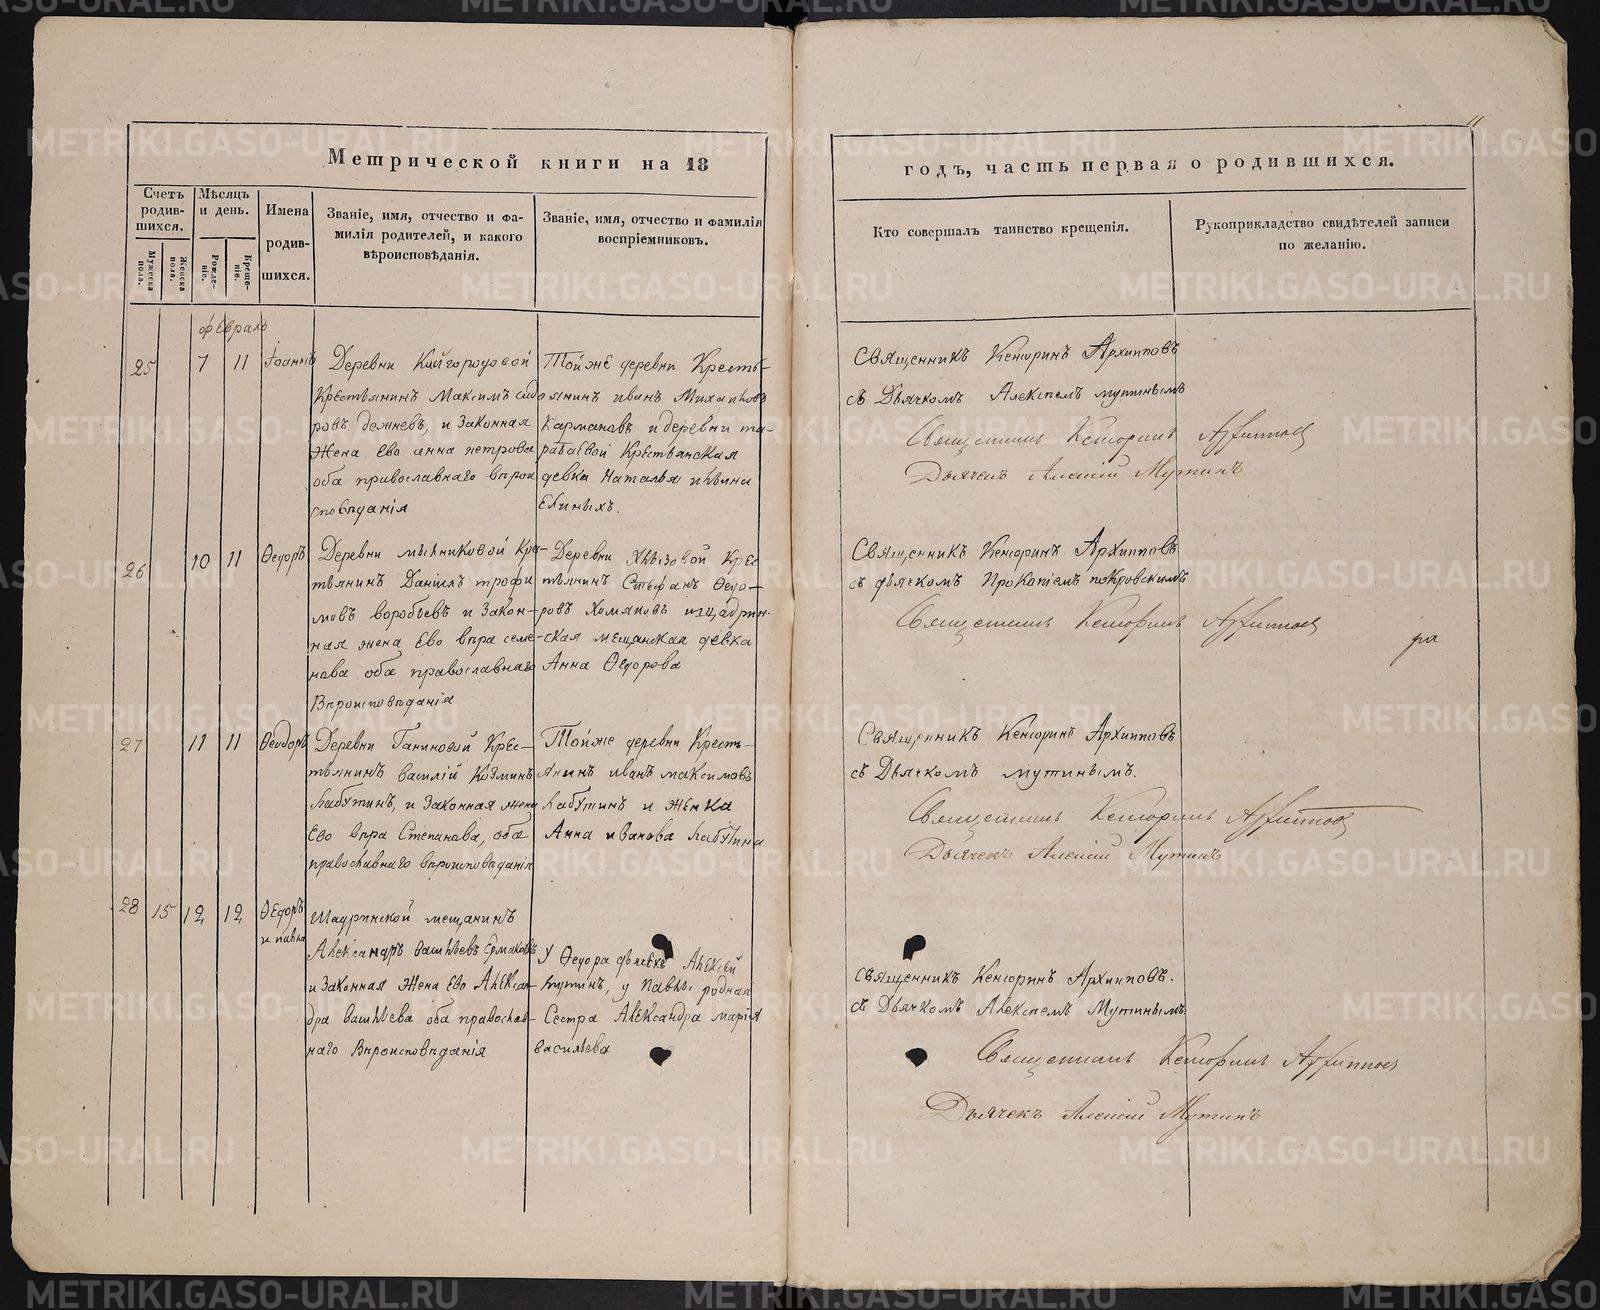 Метрической книги на 18
годъ, часть первая о родившихся.
11
Счетъ родив-шихся.
Мужеска пола.
Женска пола.
Мѣсяцъ и день.
Рожде-ніе.
Креще-ніе.
Имена родив-шихся.
Званіе, имя, отчество и фа-
милія родителей, и какого
вѣроисповѣданія.
Званіе, имя, отчество и фамилія
воспріемниковъ.
Кто совершалъ таинство крещенія.
Рукоприкладство свидѣтелей записи
по желанію.
февраль
25
7
11
Іоаннъ
Деревни Кайгородовой
Крестьянинъ Максимъ сидо
ровъ дежневъ, и Законная
Жена Ево анна петрова
оба православнаго вѣрои
сповѣданія
Той же деревни Кресть-
янинъ иванъ Михаиловъ
Кармановъ и деревни та-
рабаевой Крестьянская
девка Наталья
Священникъ Кенсоринъ Архипповъ
съ Дьячкомъ Алексѣемъ мутинымъ
Священникъ Кенсоринъ Архипповъ
Дьячекъ Алексій Мутинъ
26
10
11
Ѳедоръ
Деревни мыльниковой Кре-
тьянинъ Даніилъ трофи
мовъ воробьевъ и Закон-
ная жена Ево вѣра семе-
нова оба православнаго
Вѣроисповѣданія
Деревни Хлызовой Крес
тьянинъ Стефанъ Ѳедо-
ровъ Хомяковъ и шадрин-
ская мещанская девка
Анна Ѳедорова
Священникъ Кенсоринъ Архипповъ
съ дьячкомъ Прокопіемъ покровскимъ
Священникъ Кенсоринъ Архипповъ
27
11
11
Ѳеодоръ
Деревни Ганиновой Крес-
тьянинъ василій Козминъ
лабутинъ, и Законная жена
Ево вѣра Степанова, оба
православнаго вѣроисповѣданія
Той же деревни Кресть-
янинъ иванъ максимовъ
лабутинъ и женка
Анна иванова лабутина
Священникъ Кенсоринъ Архипповъ
съ Дьячкомъ мутинымъ.
Священникъ Кенсоринъ Архипповъ
Дьячекъ Алексій Мутинъ
28
15
12
12
Ѳедоръ
и павла
Шадринской мещанинъ
Александръ васильевъ Ермаковъ
и Законная Жена Ево Алексан-
дра васильева оба православ-
наго Вѣроисповѣданія
У Ѳедора дьячекъ Алексей
мутинъ, у Павлы родная
Сестра Александра марія
васильева
священникъ Кенсоринъ Архипповъ.
съ Дьячкомъ Алексѣемъ Мутинымъ.
Священникъ Кенсоринъ Архипповъ
Дьячекъ Алексій Мутинъ
METRIKI.GASO-URAL.RU